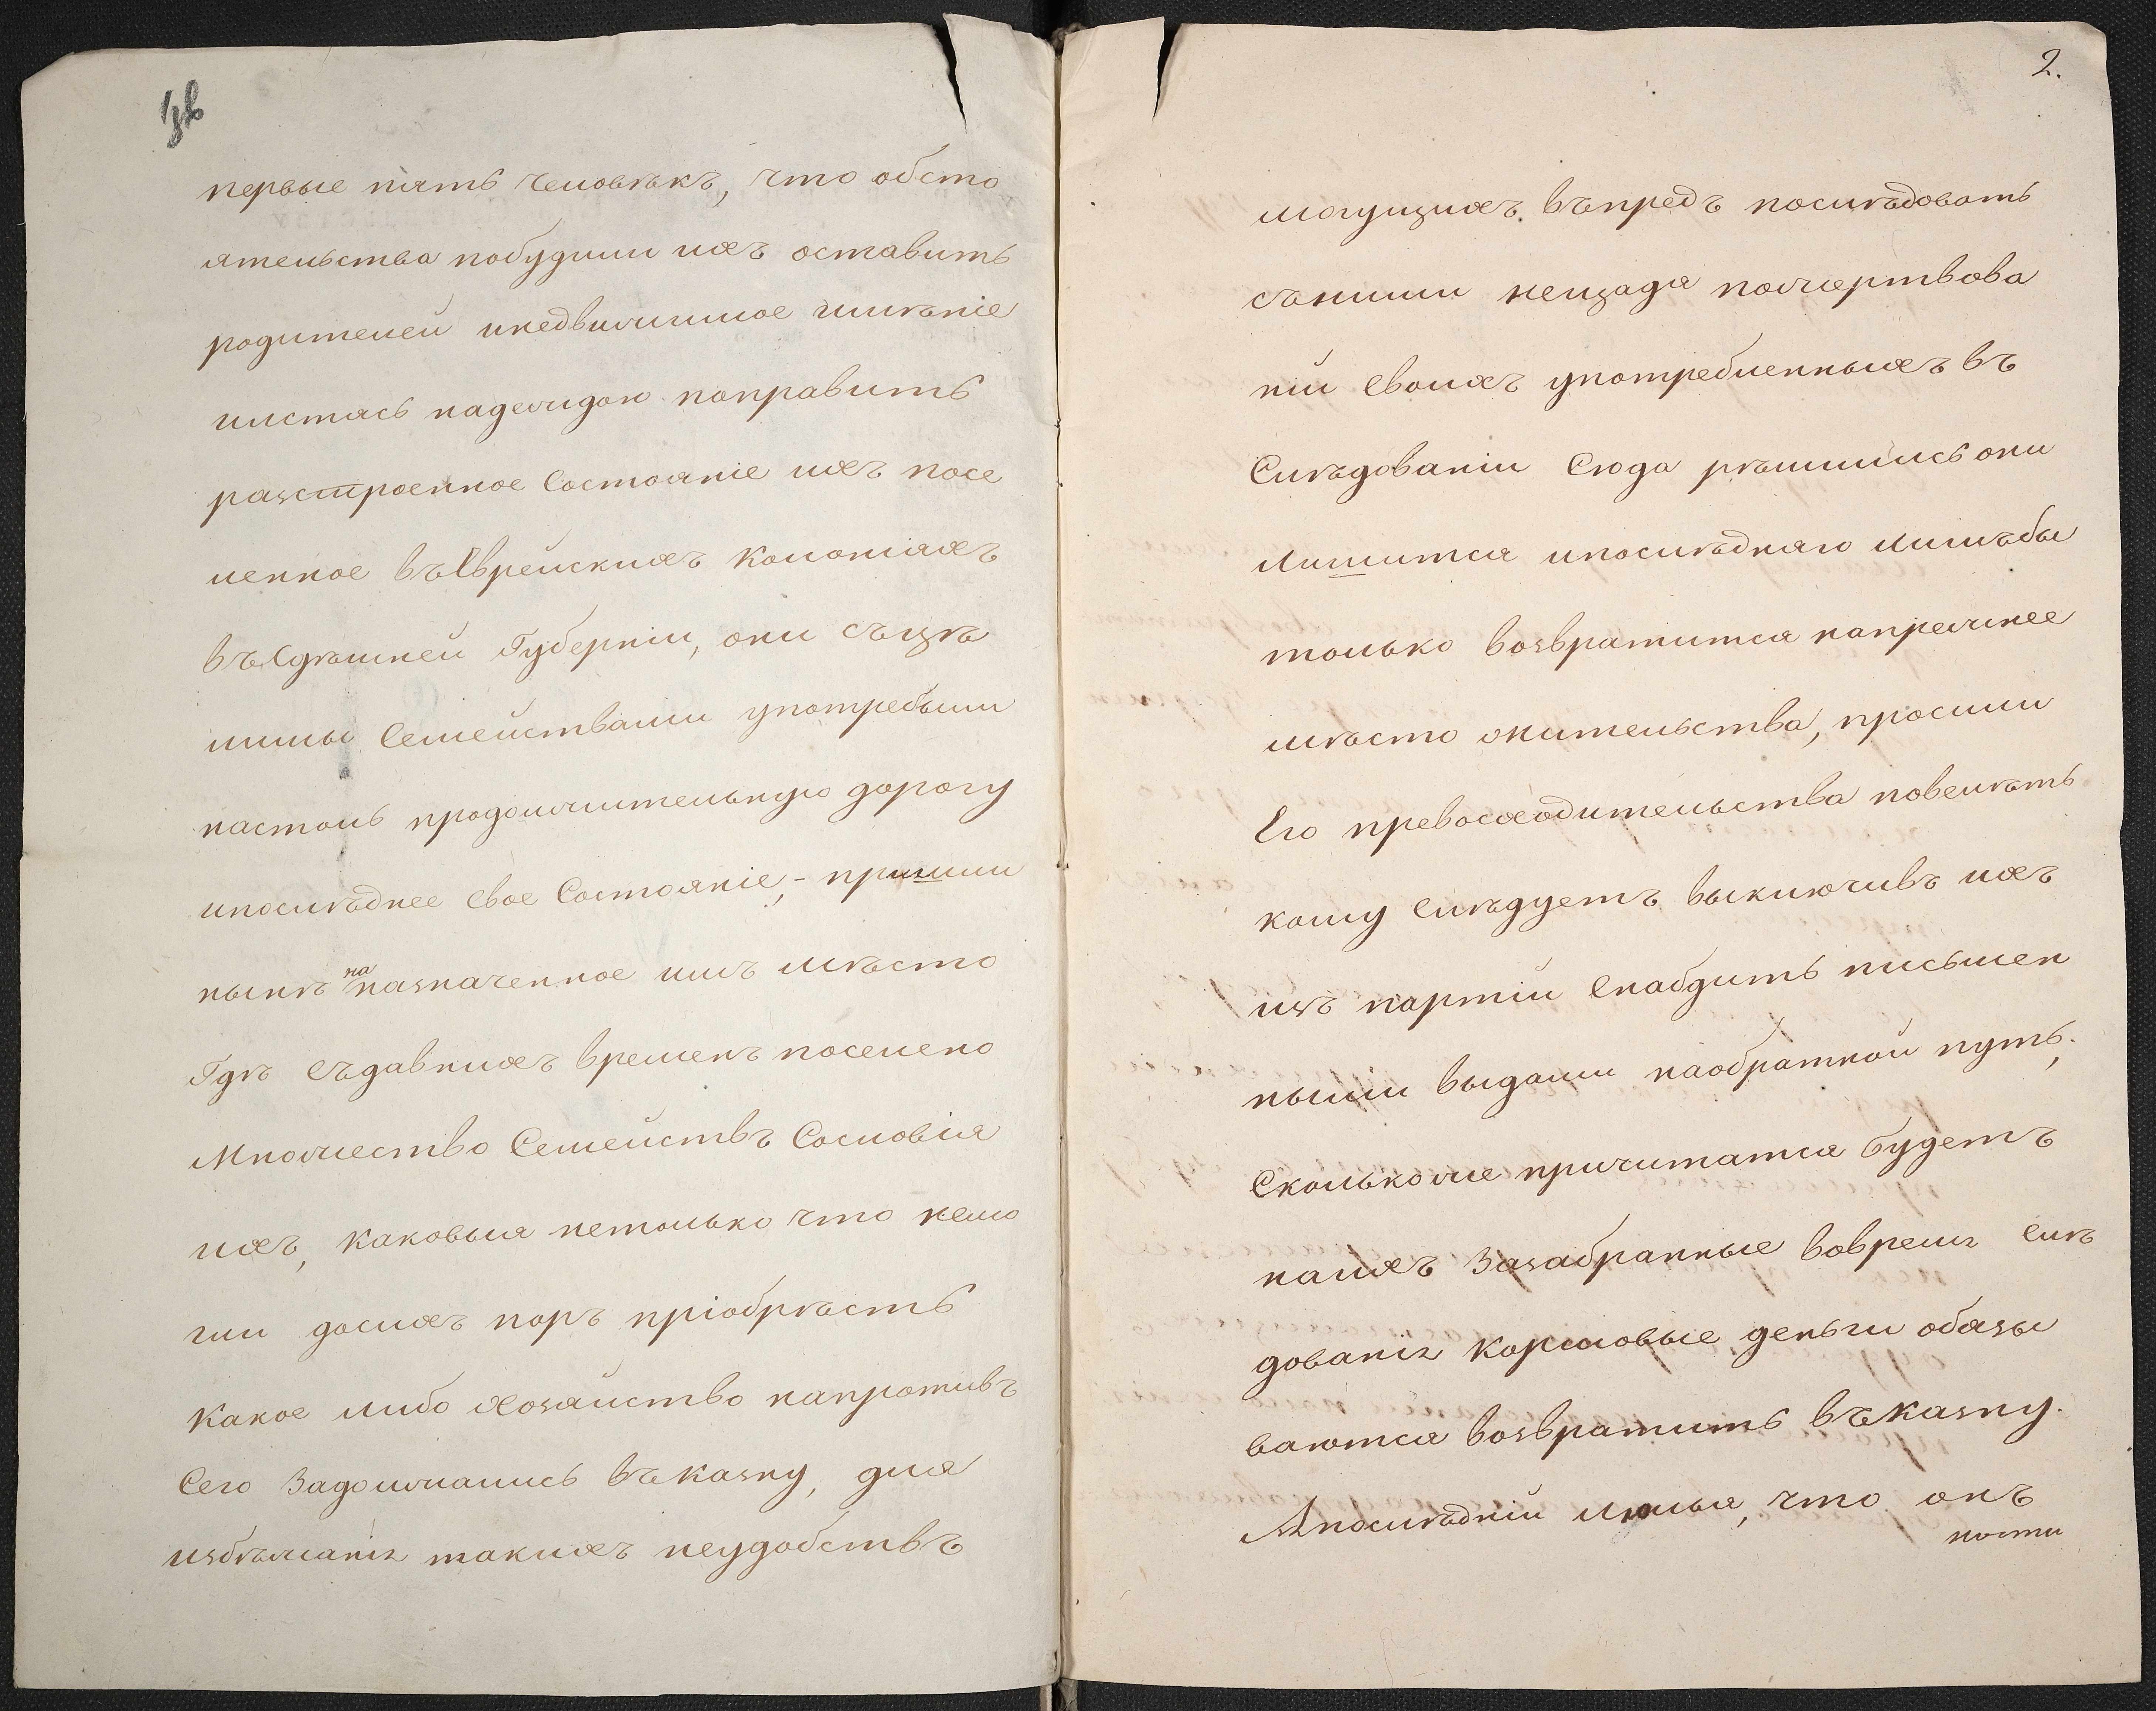 первые пять человѣкъ, что обсто
ятельства побудили ихъ оставить
родителей инедвижимое имѣніе
ильстясь надеждою поправить
разстроенное Состояніе ихъ посе
ленное въЕврейскихъ Колоніяхъ
въЗдѣшней Губерніи, они съцѣ
лымы Семействами употребыли
настоль продолжительную дорогу
ипослѣднее Свое Состояніе, - пришли
нынѣ на назначенное имъ мѣсто
Гдѣ съдавнихъ времень поселено
Множество Семействъ Сословія
ихъ, каковыя нетолько что немо
гли досихъ поръ пріобрѣсть
Какое либо хозяйство напротивъ
Сего Задолжались въказну, для
избѣжанія такихъ неудобствъ
2.
могущихъ въпредъ послѣдовать
съними нещадя пожертвова
ній Своихъ употребленныхъ въ
Слѣдованіи Сюда рѣшились они
Лишится ипослѣдняго лишъбы
только возвратится напрежнее
мѣсто жительства, просили
Его превосходительства повелѣть
кому Слѣдуетъ выключивъ ихъ
изъ партій Снабдить письмен
ными выдами наобратной путь,
Сколькоже причитатся будетъ
нанихъ Зазабранные вовремя Слѣ
дованія Кормовые деньги обязы
ваются возвратить въказну.
Апослѣдній Люмья, что онъ
почти